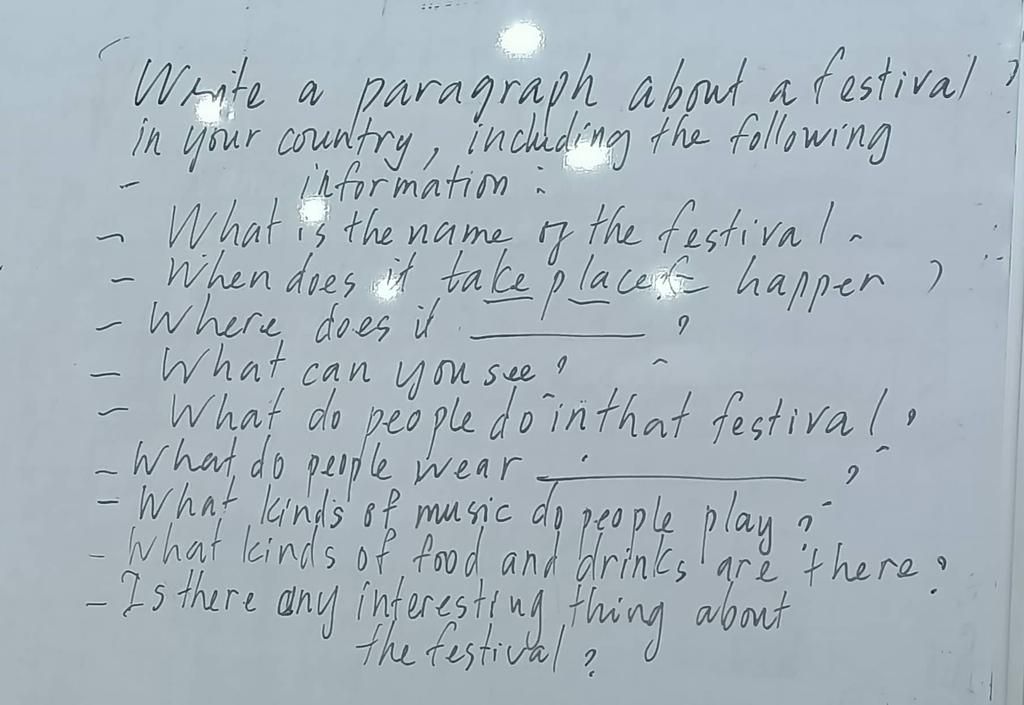 Write a paragraph about a festival
in your country, including the following
information :
- What is the name of the festival.
- When does it take place = happen ?
- Where does it ________ ?
- What can you see ?
- What do people do in that festival ?
- What do people wear ____________ ?
- What kinds of music do people play ?
- What kinds of food and drinks are there ?
- Is there any interesting thing about
the festival ?